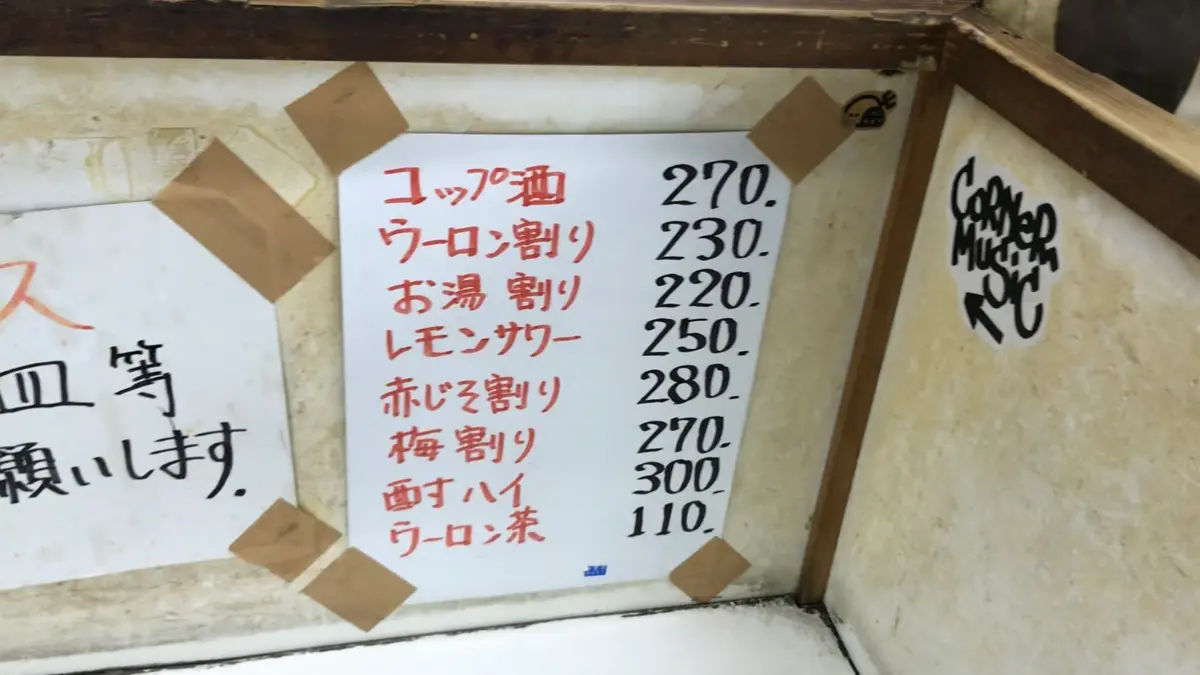 ス
皿等
願いします.
コップ酒 270.
ウーロン割り 230.
お湯割り 220.
レモンサワー 250.
赤じそ割り 280.
梅割り 270.
酎ハイ 300.
ウーロン茶 110.
CORNER
MUSIC